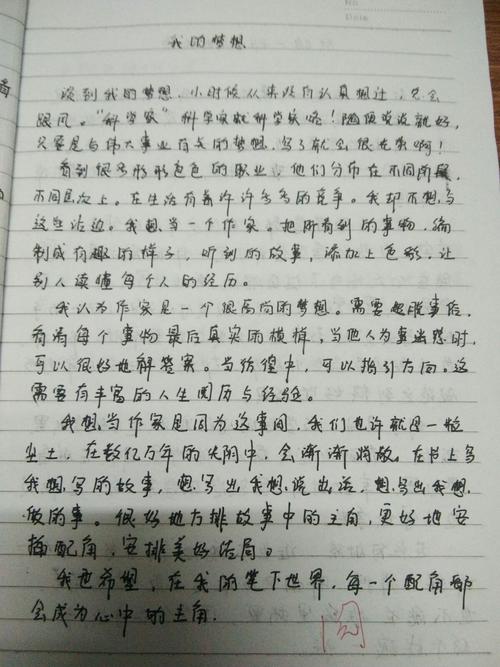 No
Date
我的梦想
谈到我的梦想，小时候从来没有认真想过，只会
跟风。"科学家"科学家就科学家咯！随便说说就好，
只要是与伟大事业有关的梦想，写了就会很光荣啊！
看到很多形形色色的职业，他们分布在不同阶段，
不同层次上。在生活有着许许多多的竞争。我却不想与
这些沾边。我想当一个作家。把所看到的事物，编
制成有趣的样子，听到的故事，添加上色彩，让
别人读懂每个人的经历。
我认为作家是一个很高尚的梦想。需要超脱事后，
看清每个事物最后真实的模样，当他人为事迷惑时，
可以很好地解答案。当彷徨中，可以指引方向。这
需要有丰富的人生阅历与经验。
我想当作家是因为这事间，我们也许就是一粒
尘土，在数亿万年的光阴中，会渐渐消散。在书上写
我想写的故事，想写出我想说出话，想写出我想
做的事。很好地安排故事中的主角，更好地安
插配角，安排美好结局。
我也希望，在我的笔下世界，每一个配角都
会成为心中的主角。
阅